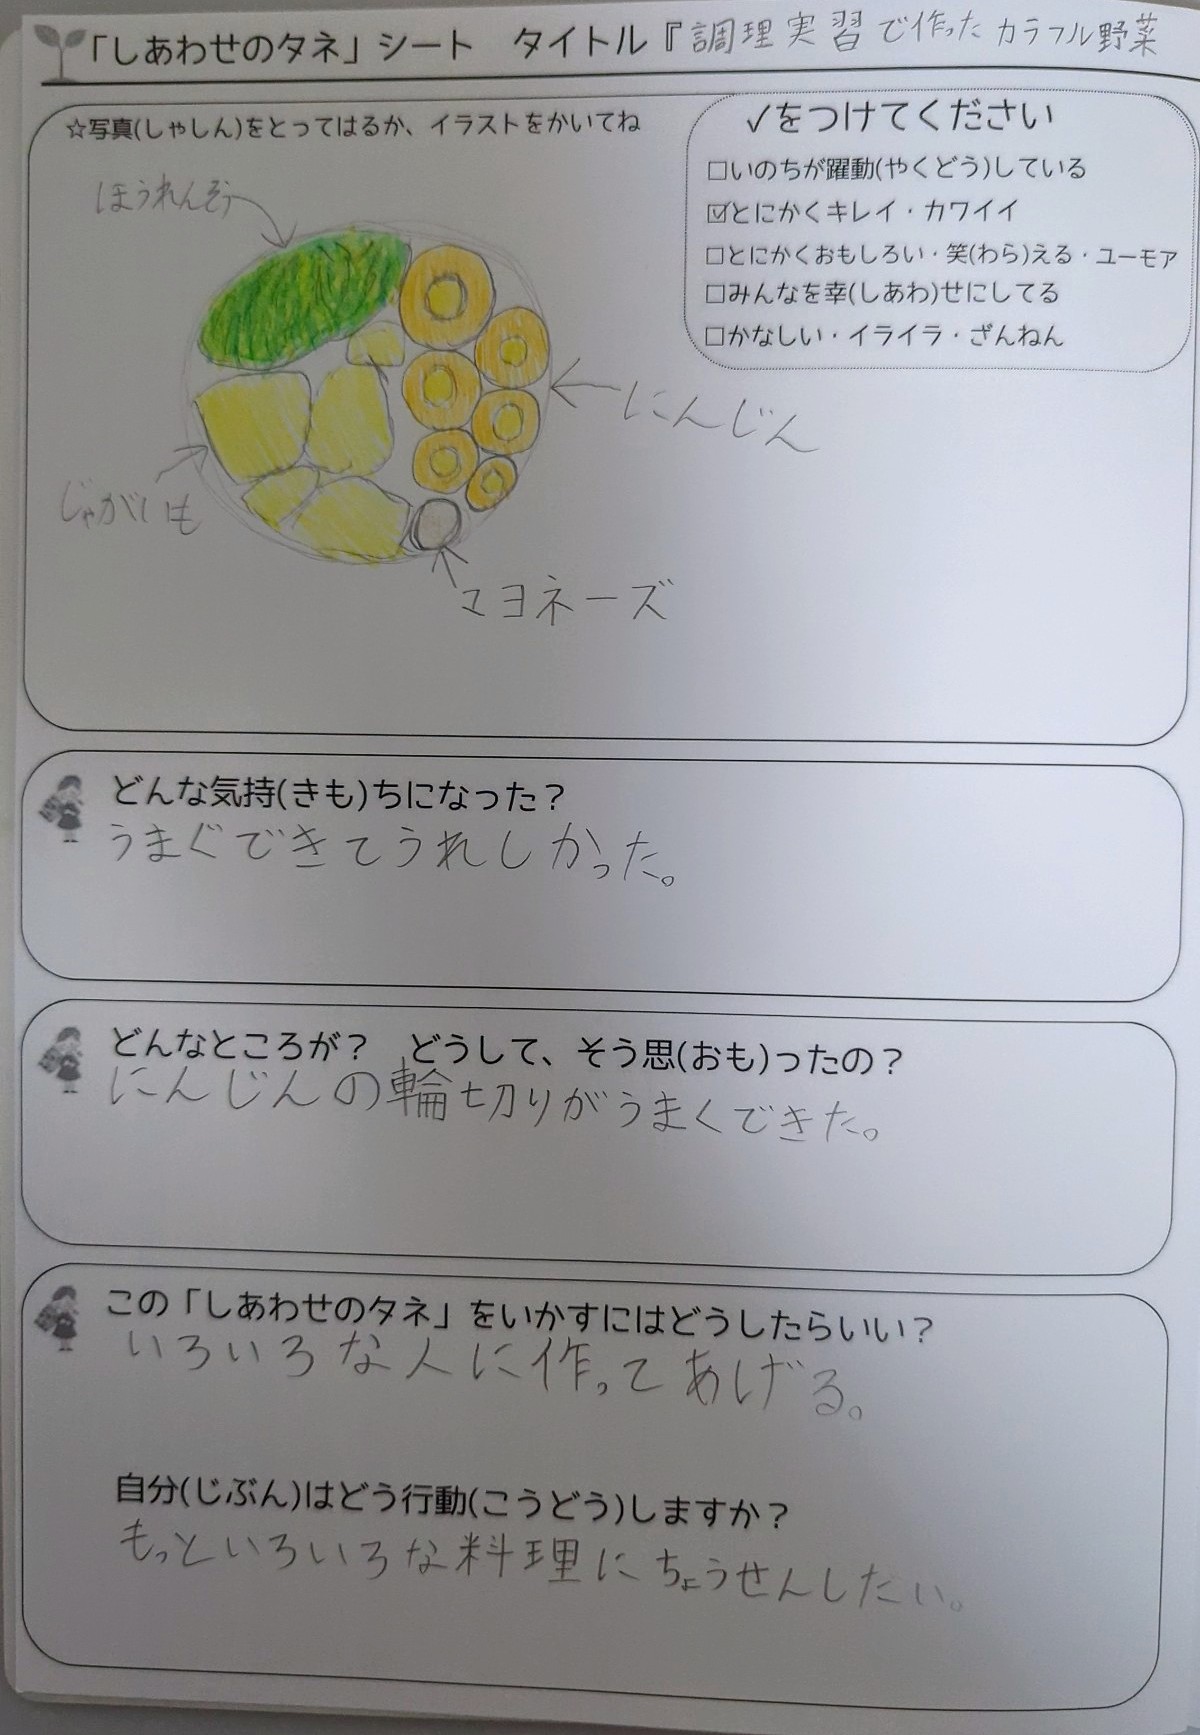 「しあわせのタネ」シート　タイトル『調理実習で作ったカラフル野菜
☆写真(しゃしん)をとってはるか、イラストをかいてね
✓をつけてください
□いのちが躍動(やくどう)している
☑とにかくキレイ・カワイイ
□とにかくおもしろい・笑(わら)える・ユーモア
□みんなを幸(しあわ)せにしてる
□かなしい・イライラ・ざんねん
ほうれんぞう
にんじん
じゃがいも
マヨネーズ
どんな気持(きも)ちになった？
うまぐできてうれしかった。
どんなところが？　どうして、そう思(おも)ったの？
にんじんの輪切りがうまくできた。
この「しあわせのタネ」をいかすにはどうしたらいい？
いろいろな人に作ってあげる。
自分(じぶん)はどう行動(こうどう)しますか？
もっといろいろな料理にちょうせんしたい。